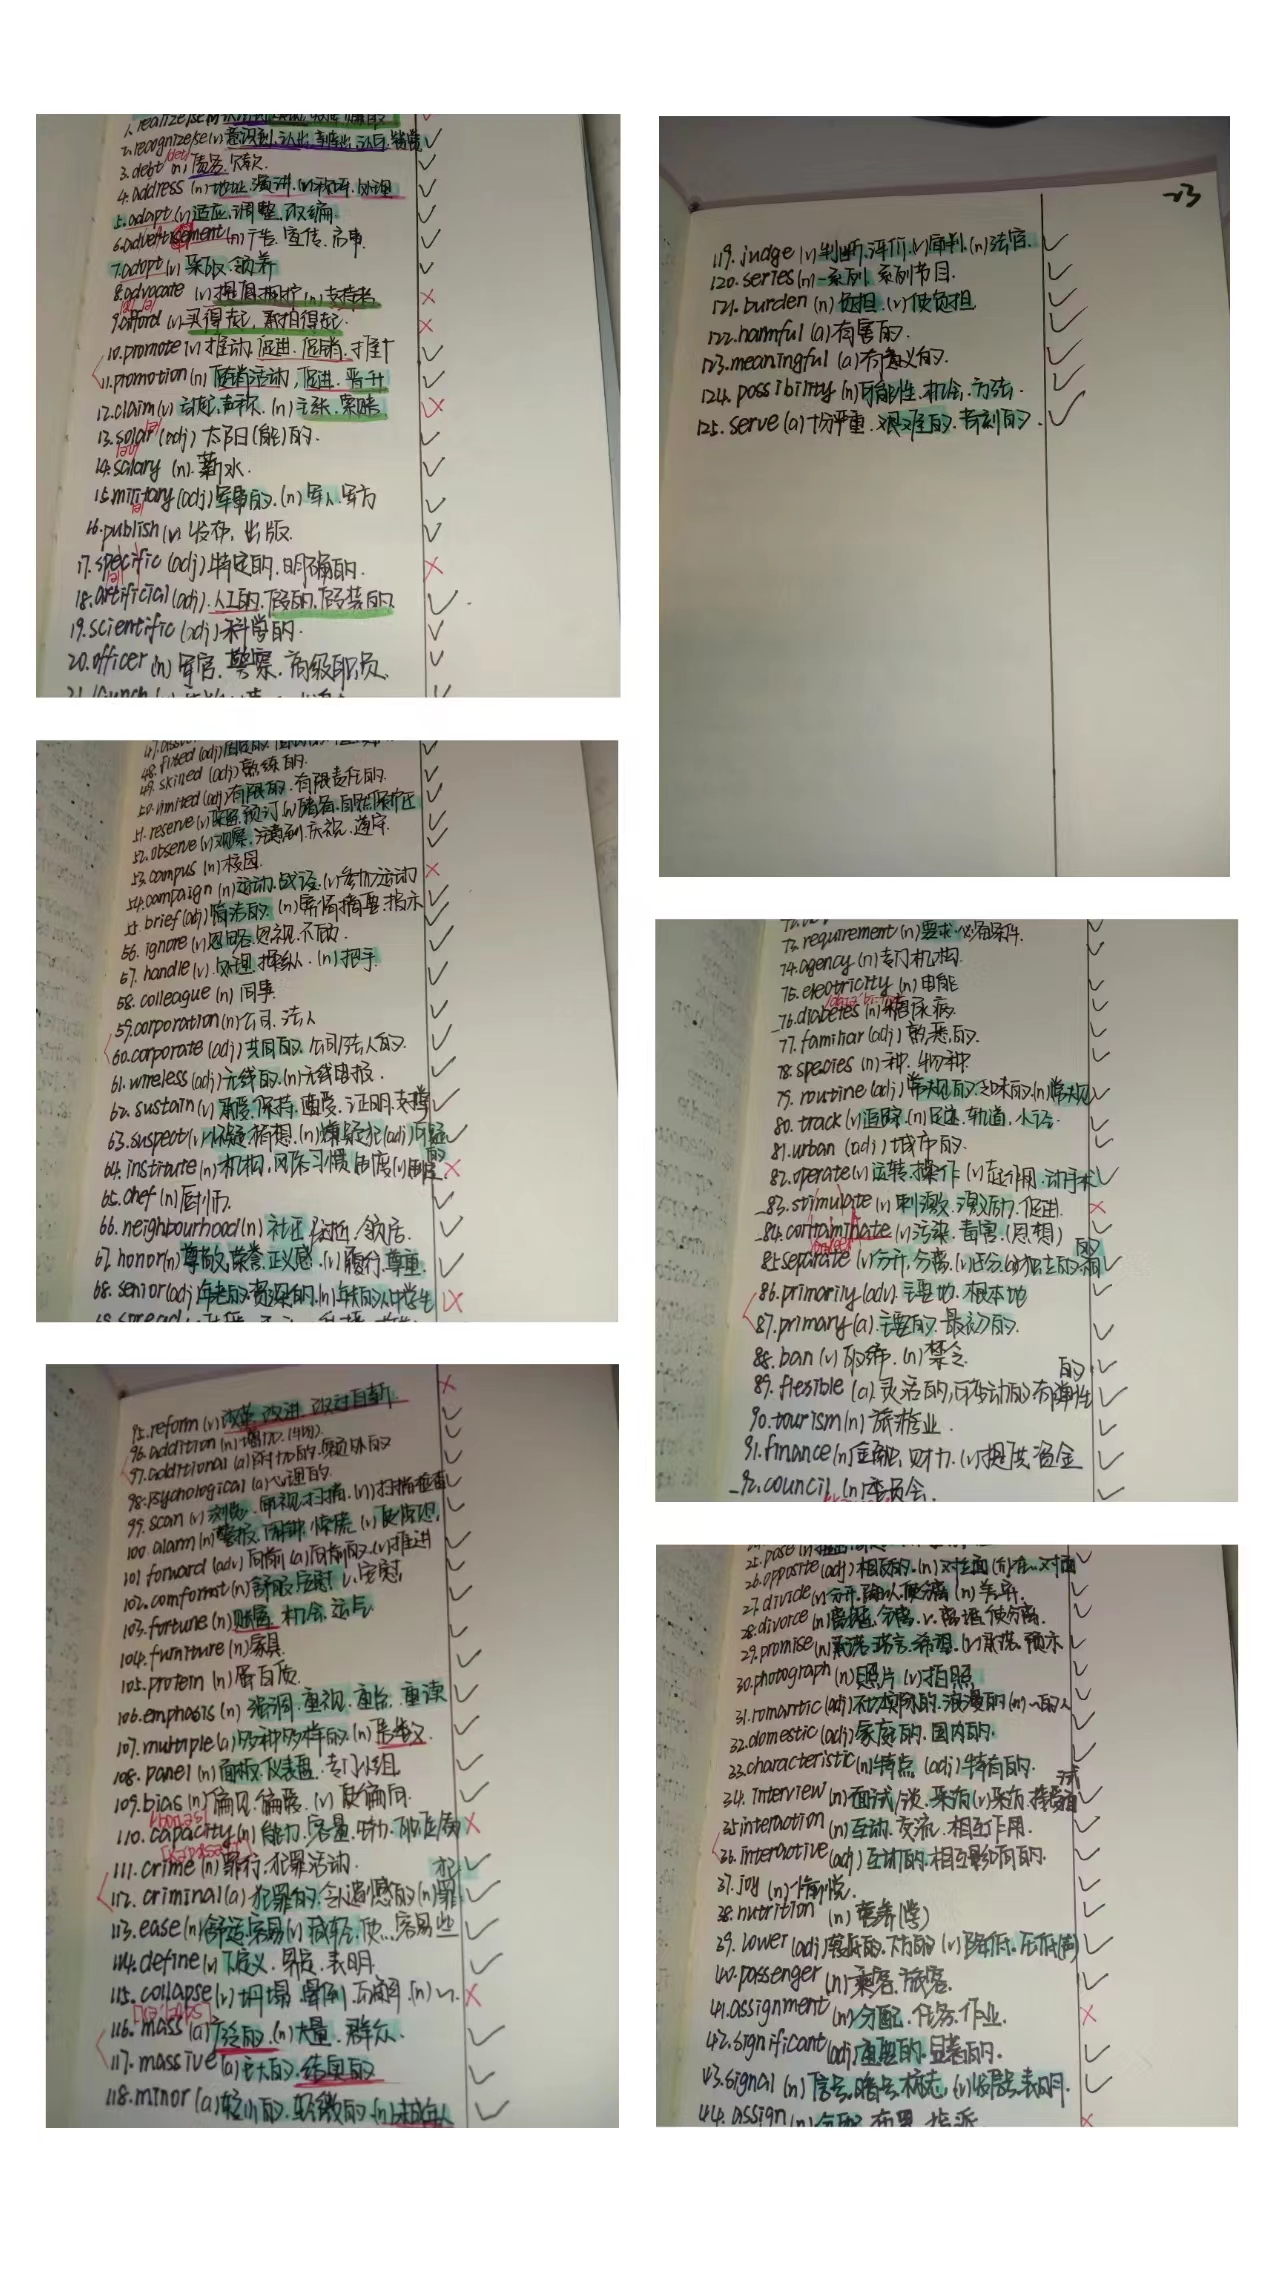 1. realize/se
2. recognize/se (v) 意识到.认出.
3. debt (n) 债务.欠款.
4. address (n) 地址.演讲. (v) 称呼.处理
5. adapt (v) 适应.调整.改编.
6. advertisement (n) 广告.宣传.启事.
7. adopt (v) 采取.领养
8. advocate (v) 提倡.拥护 (n) 支持者
9. afford (v) 买得起, 承担得起.
10. promote (v) 推动. 促进. 促销. 推广
11. promotion (n) 促销活动, 促进. 晋升
12. claim (v) 声称. (n) 主张. 索赔
13. solar (adj) 太阳(能)的.
14. salary (n). 薪水.
15. military (adj) 军事的. (n) 军人. 军方
16. publish (v) 发布. 出版.
17. specific (adj) 特定的. 明确的.
18. artificial (adj). 人工的. 假的. 假装的.
19. scientific (adj) 科学的.
20. officer (n) 军官. 警察. 高级职员.
48. fitted (adj)
49. skilled (adj) 熟练的.
50. limited (adj) 有限的. 有限责任的.
51. reserve (v) 保留. 预订 (n) 储备. 自然保护区
52. observe (v) 观察. 注意到. 庆祝. 遵守.
53. campus (n) 校园.
54. campaign (n) 运动. 战役. (v) 参加运动
55. brief (adj) 简洁的. (n) 摘要. 指示
56. ignore (v) 忽略. 忽视. 不顾.
57. handle (v). 处理. 操纵. (n) 把手.
58. colleague (n) 同事.
59. corporation (n) 公司. 法人
60. corporate (adj) 共同的. 公司/法人的.
61. wireless (adj) 无线的. (n) 无线电报.
62. sustain (v) 承受. 保持. 遭受. 证明. 支撑
63. suspect (v) 怀疑. 猜想. (n) 嫌疑犯 (adj) 可疑的
64. institute (n) 机构. 风俗习惯. 制度 (v) 制定.
65. chef (n) 厨师.
66. neighbourhood (n) 社区. 邻近. 邻居.
67. honor (n) 尊敬. 荣誉. 正义感. (v) 履行. 尊重.
68. senior (adj) 年老的. 资深的. (n)
95. reform (v) 改革. 改进. 改过自新.
96. addition (n) 增加.
97. additional (a) 附加的. 额外的
98. psychological (a) 心理的.
99. scan (v) 浏览. 审视. 扫描. (n) 扫描检查
100. alarm (n) 警报. 闹钟. 惊慌 (v) 使惊恐.
101. forward (adv) 向前 (a) 向前的. (v) 推进
102. comformt (n) 舒服. 安慰 v. 安慰.
103. fortune (n) 财富. 机会. 运气.
104. furniture (n) 家具.
105. protein (n) 蛋白质.
106. emphasis (n) 强调. 重视. 重音. 重读
107. multiple (a) 多种多样的. (n) 倍数.
108. panel (n) 面板. 仪表盘. 专门小组.
109. bias (n) 偏见. 偏爱. (v) 使偏向.
110. capacity (n) 能力. 容量.
111. crime (n) 罪行. 犯罪活动.
112. criminal (a) 犯罪的. 令遗憾的. (n) 罪犯
113. ease (n) 舒适. 容易 (v) 减轻. 使..容易些
114. define (v) 下定义. 界定. 表明.
115. collapse (v) 坍塌. 晕倒. 瓦解. (n) ~.
116. mass (a) 广泛的. (n) 大量. 群众.
117. massive (a) 巨大的. 结实的
118. minor (a) 较小的. 轻微的. (n) 未成年人
-23
119. judge (v) 判断. 评价. (v) 审判. (n) 法官.
120. series (n) 一系列. 系列节目.
121. burden (n) 负担. (v) 使负担
122. harmful (a) 有害的.
123. meaningful (a) 有意义的.
124. possibility (n) 可能性. 机会. 方法.
125. serve (a) 十分严重. 艰难的. 苛刻的.
73. requirement (n) 要求. 必备条件.
74. agency (n) 专门机构.
75. electricity (n) 电能
76. diabetes (n) 糖尿病.
77. familiar (adj) 熟悉的.
78. species (n) 种. 物种.
79. routine (adj) 常规的. 乏味的. (n) 常规
80. track (v) 追踪. (n) 足迹. 轨道. 小径.
81. urban (adj) 城市的.
82. operate (v) 运转. 操作 (v) 起作用. 动手术
83. stimulate (v) 刺激. 激励. 促进.
84. contaminate (v) 污染. 毒害. (思想)
85. separate (v) 分开. 分离.
86. primarily (adv). 主要地. 根本地
87. primary (a). 主要的. 最初的.
88. ban (v) 取缔. (n) 禁令.
89. flesible (a) 灵活的, 可变动的. 有弹性的.
90. tourism (n) 旅游业.
91. finance (n) 金融. 财力. (v) 提供资金
92. council (n) 委员会.
26. opposite (adj) 相反的. (n) 对立面
27. divide (v) 分开.
28. divorce (n) 离婚. 分离. v. 离婚. 使分离.
29. promise (n) 承诺. 诺言. 希望. (v) 承诺. 预示
30. photograph (n) 照片 (v) 拍照.
31. romantic (adj) 不切实际的. 浪漫的 (n) ~的人
32. domestic (adj) 家庭的. 国内的.
33. characteristic (n) 特点. (adj) 特有的.
34. interview (n) 面试/谈. 采访 (v) 采访.
35. interaction (n) 互动. 交流. 相互作用.
36. interactive (adj) 互动的. 相互影响的.
37. joy (n) 愉悦.
38. nutrition (n) 营养(学)
39. lower (adj) 较低的. 下方的 (v) 降低. 压低(声)
40. passenger (n) 乘客. 旅客.
41. assignment (n) 分配. 任务. 作业.
42. significant (adj) 重要的. 显著的.
43. signal (n) 信号. 暗号. 标志. (v) 发信号. 表明.
44. assign (n) 分配. 布置. 指派